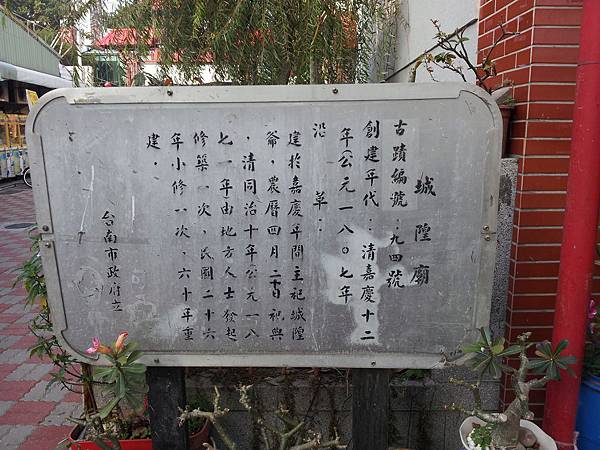 城隍廟
古蹟編號：九四號
創建年代：清嘉慶十二
年(公元一八〇七年
沿革：
建於嘉慶年間主祀城隍
爺，農曆四月二十日祀典
，清同治十年公元一八
七一年)由地方人士發起
修築一次，民國二十六
年小修一次，六十年重
建．
台南市政府立